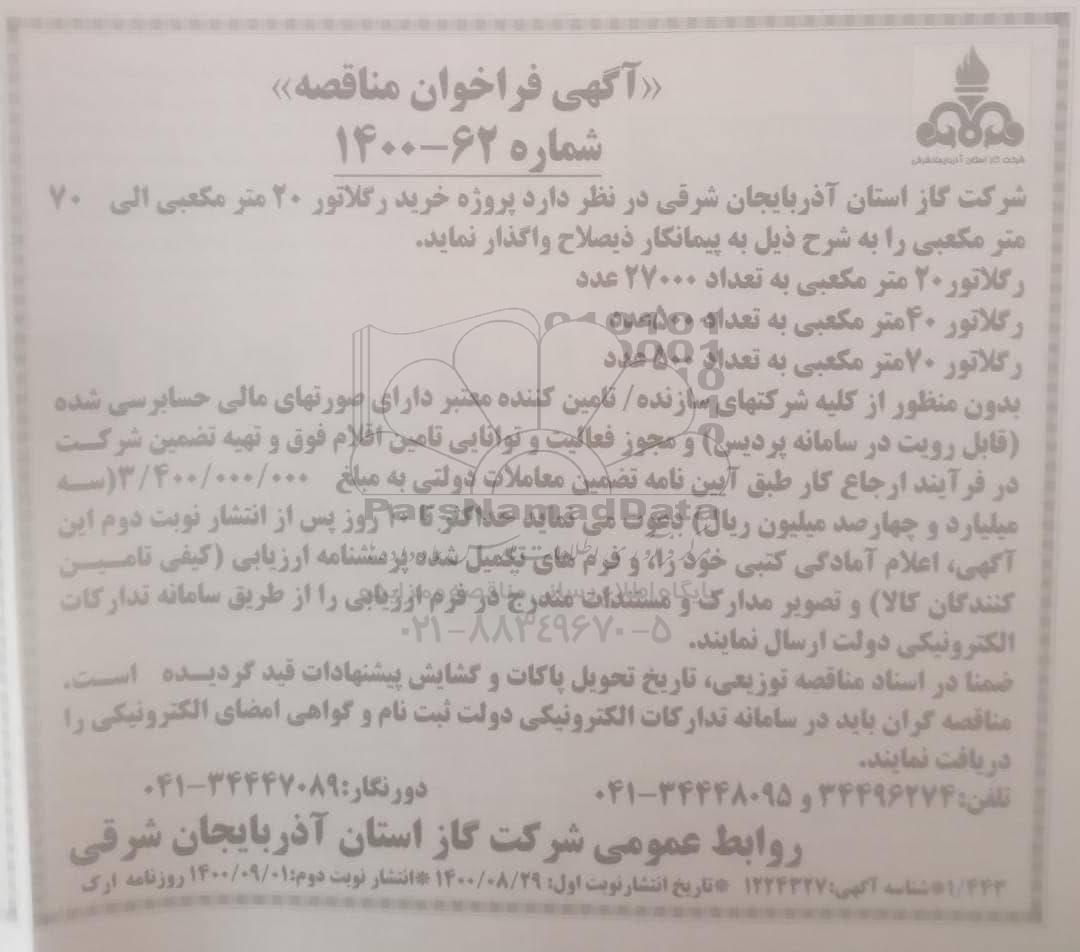 «آگهی فراخوان مناقصه»
شماره ۶۲-۱۴۰۰
شرکت گاز استان آذربایجان شرقی
شرکت گاز استان آذربایجان شرقی در نظر دارد پروژه خرید رگلاتور ۲۰ متر مکعبی الی ۷۰
متر مکعبی را به شرح ذیل به پیمانکار ذیصلاح واگذار نماید.
رگلاتور۲۰ متر مکعبی به تعداد ۲۷۰۰۰ عدد
رگلاتور ۴۰متر مکعبی به تعداد ۵۰۰عدد
رگلاتور ۷۰متر مکعبی به تعداد ۵۰۰عدد
بدون منظور از کلیه شرکتهای سازنده/ تامین کننده معتبر دارای صورتهای مالی حسابرسی شده
(قابل رویت در سامانه پردیس) و مجوز فعالیت و توانایی تامین اقلام فوق و تهیه تضمین شرکت
در فرآیند ارجاع کار طبق آیین نامه تضمین معاملات دولتی به مبلغ ۳/۴۰۰/۰۰۰/۰۰۰(سه
میلیارد و چهارصد میلیون ریال) دعوت می نماید حداکثر تا ۱۰ روز پس از انتشار نوبت دوم این
آگهی، اعلام آمادگی کتبی خود را، و فرم های تکمیل شده پرسشنامه ارزیابی (کیفی تامین
کنندگان کالا) و تصویر مدارک و مستندات مندرج در فرم ارزیابی را از طریق سامانه تدارکات
الکترونیکی دولت ارسال نمایند.
ضمنا در اسناد مناقصه توزیعی، تاریخ تحویل پاکات و گشایش پیشنهادات قید گردیده است.
مناقصه گران باید در سامانه تدارکات الکترونیکی دولت ثبت نام و گواهی امضای الکترونیکی را
دریافت نمایند.
تلفن:۳۴۴۹۶۲۷۴ و ۳۴۴۴۸۰۹۵-۰۴۱ دورنگار:۳۴۴۴۷۰۸۹-۰۴۱
روابط عمومی شرکت گاز استان آذربایجان شرقی
۱/۴۴۳*شناسه آگهی:۱۲۲۴۳۲۷ *تاریخ انتشارنوبت اول: ۱۴۰۰/۰۸/۲۹ *انتشار نوبت دوم:۱۴۰۰/۰۹/۰۱ روزنامه ارک
ParsNamadData
پایگاه اطلاع رسانی مناقصه و مزایده
۰۲۱-۸۸۳۴۹۶۷۰-۵